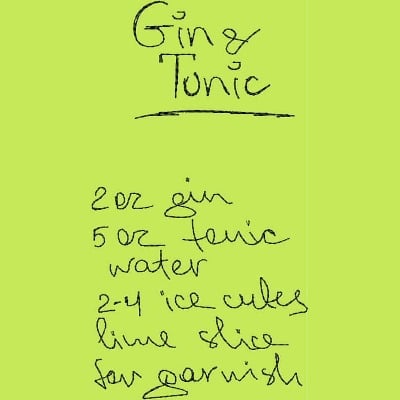 Gin &
Tonic
2 oz gin
5 oz tonic
water
2-4 ice cubes
lime slice
for garnish